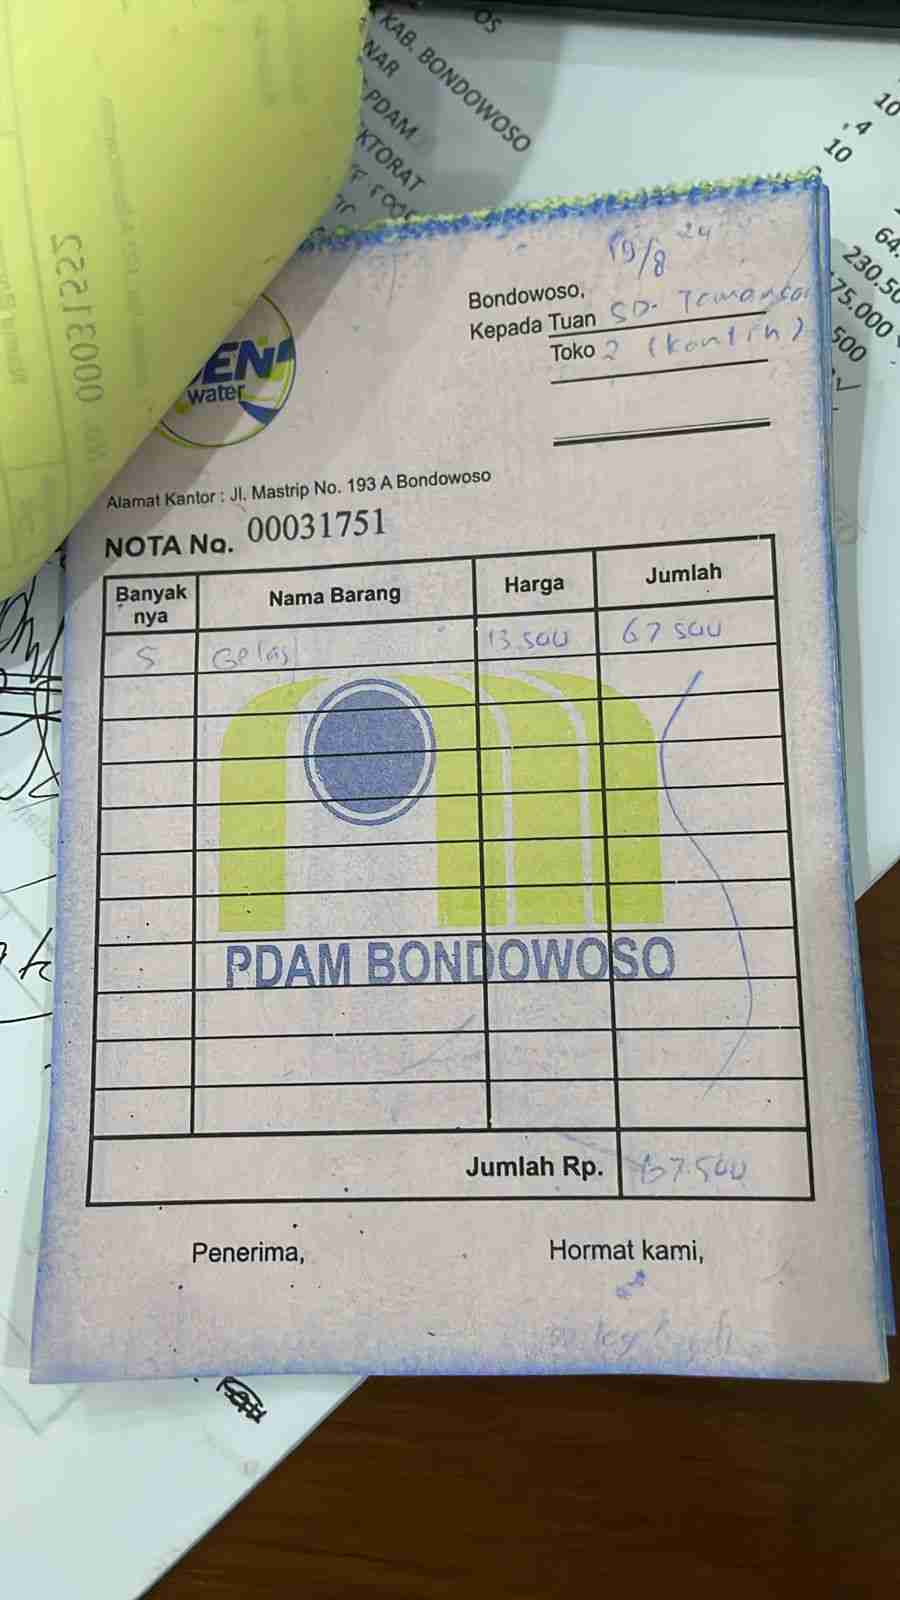 OS
KAB. BONDOWOSO
NAR
PDAM
KTORAT
10
, 4
10
64.
230.50
75.000
500
00031552
19/8 24
Bondowoso,
Kepada Tuan SD. Tamansari
Toko 2 (kantin)
EN
water
Alamat Kantor : Jl. Mastrip No. 193 A Bondowoso
NOTA No. 00031751
Banyak nya Nama Barang Harga Jumlah
5 Gelas 13.500 67 500
PDAM BONDOWOSO
Jumlah Rp. 67.500
Penerima, Hormat kami,